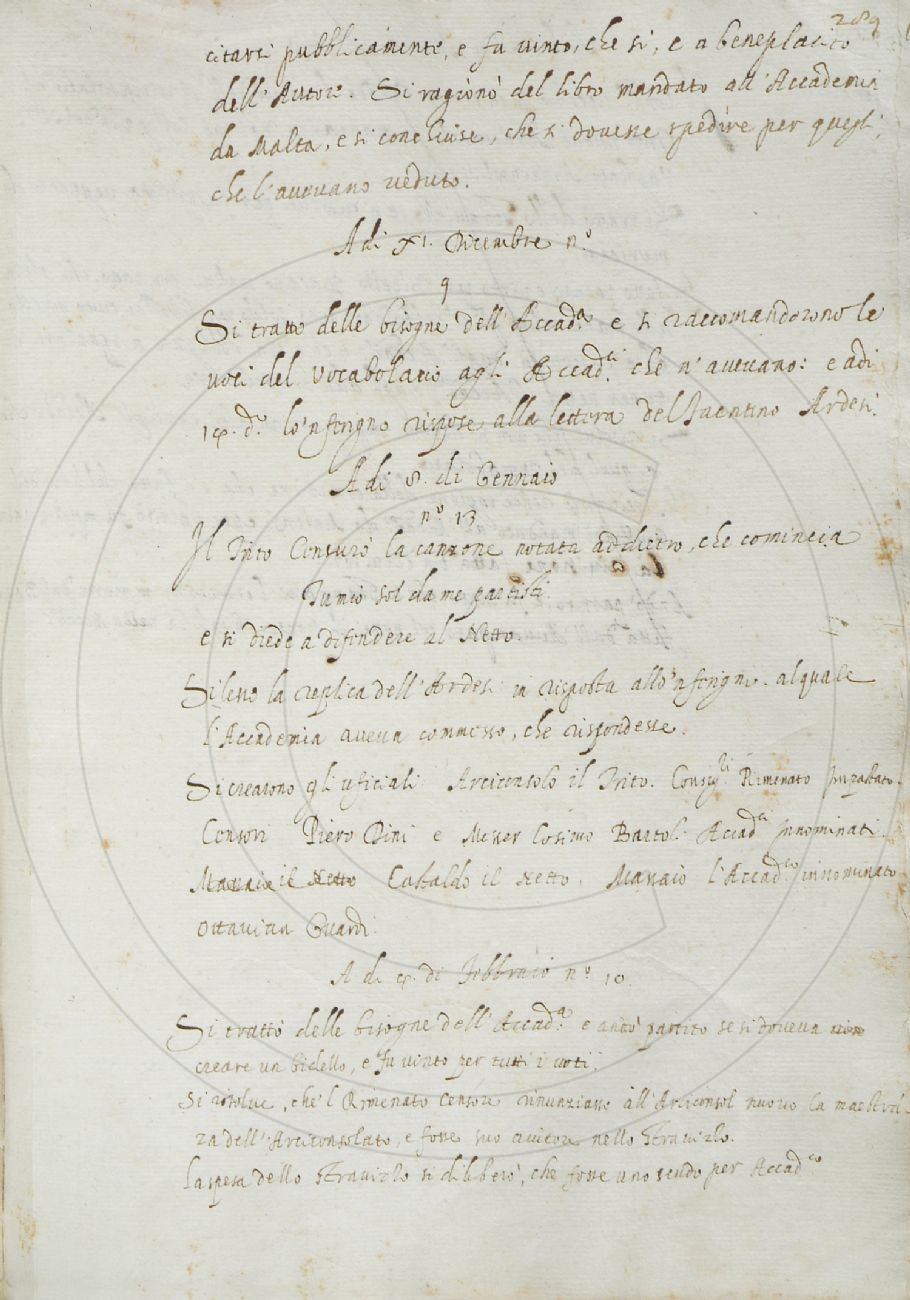 289
citarsi pubblicamente, e fu vinto, che sì, e a beneplacito
dell'Autore. Si ragionò del libro mandato all'Accademia
da Malta, e si conchiuse, che si dovesse spedire per quegli,
che l'avevano veduto.
A dì XI. Dicembre n.º
9
Si trattò delle bisogne dell'Accad.ª e si raccomandorono le
voci del vocabolario agli Accad.ci che n'avevano: e adì
d.º lo'nferigno rispose alla lettera del Ardesi.
A dì 8. di Gennaio
n.º 13
Il Trito Censurò la canzone notata addietro, che comincia
Tu mio sol da me partisti.
e si diede a difendere al Netto
Si lesse la replica dell'Ardesi in risposta allo'nferigno. al quale
l'Accademia aveva commesso, che rispondesse.
Si creorono gli uficiali Arciconsolo il Trito. Consig.li Rimenato Impastato.
Censori Piero Dini e Messer Cosimo Bartol. Accad.ci innominati.
Massaio il Netto Castaldo il Netto. Massaio l'Accad.co innominato
Ottavian Guardi.
A dì di Febbraio n.º 10.
Si trattò delle bisogne dell'Accad.ª e andò partito se si doveva
creare un bidello, e fu vinto per tutti i voti.
Si risolvé, che'l Rimenato Censore rinunziasse all'Arciconsol nuovo la maestran-
za dell'Arciconsolato, e fosse suo nello Stravizzo.
La spesa dello Stravizzo si diliberò, che fosse uno scudo per Accad.co